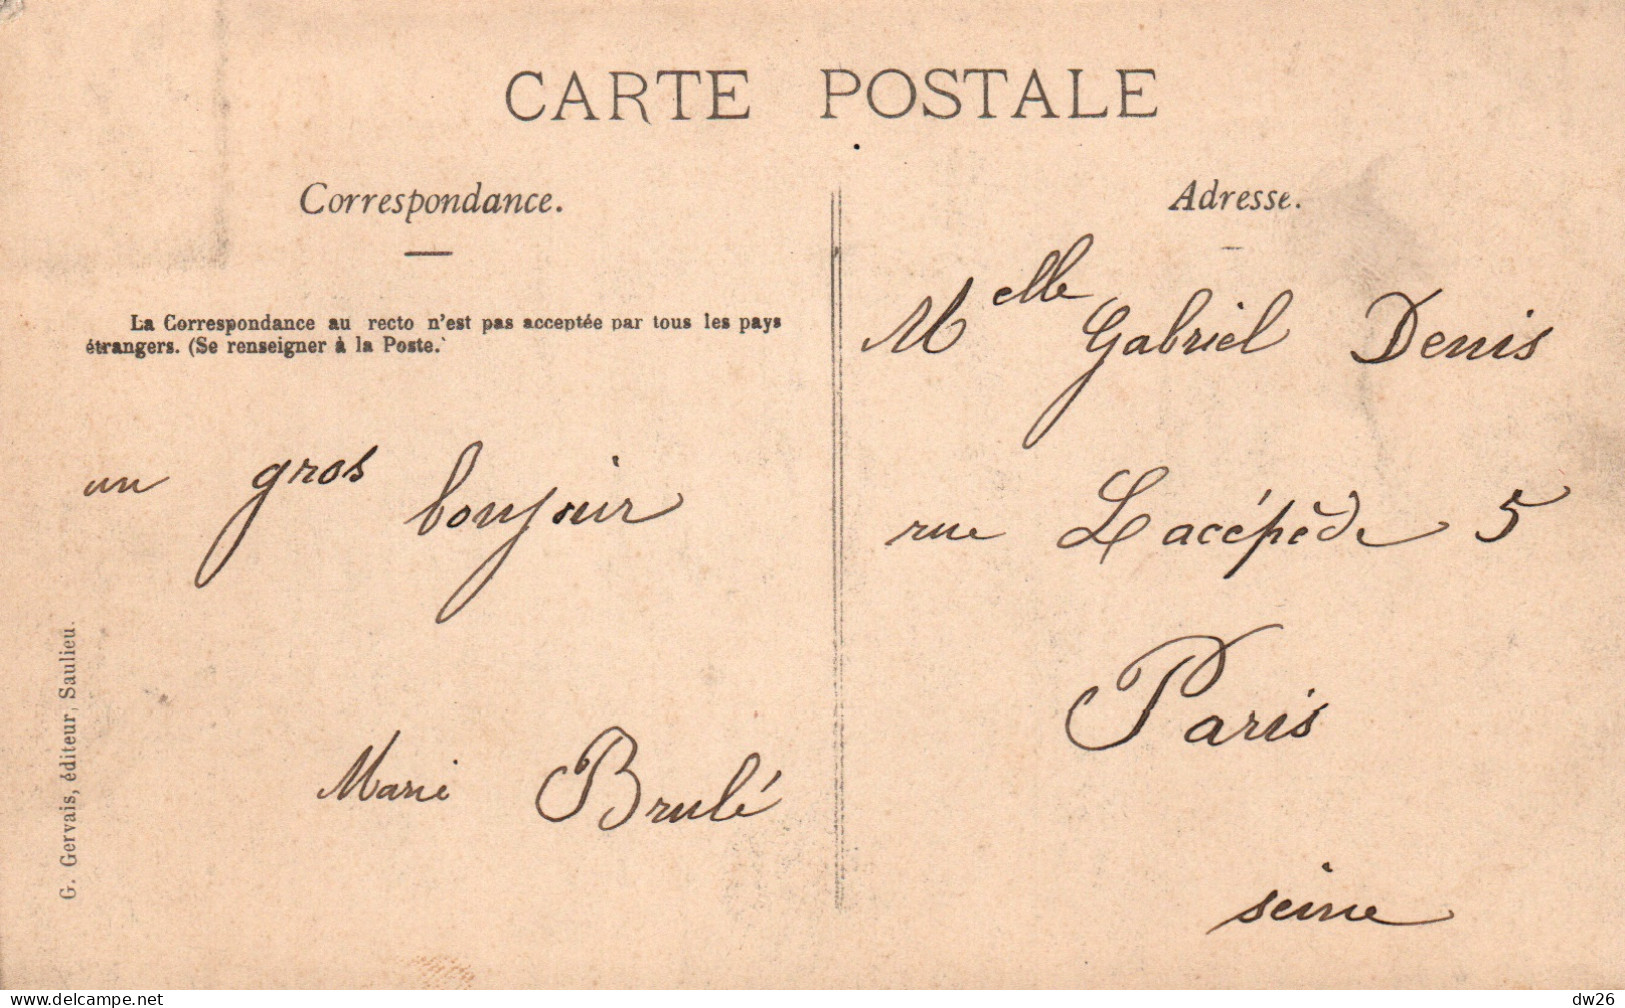 CARTE POSTALE
Correspondance.
La Correspondance au recto n'est pas acceptée par tous les pays
étrangers. (Se renseigner à la Poste.
un gros bonjour
Marie Brulé
G. Gervais, éditeur, Saulieu.
Adresse.
Melle Gabriel Denis
rue Lacépède 5
Paris
seine
www.delcampe.net
dw26